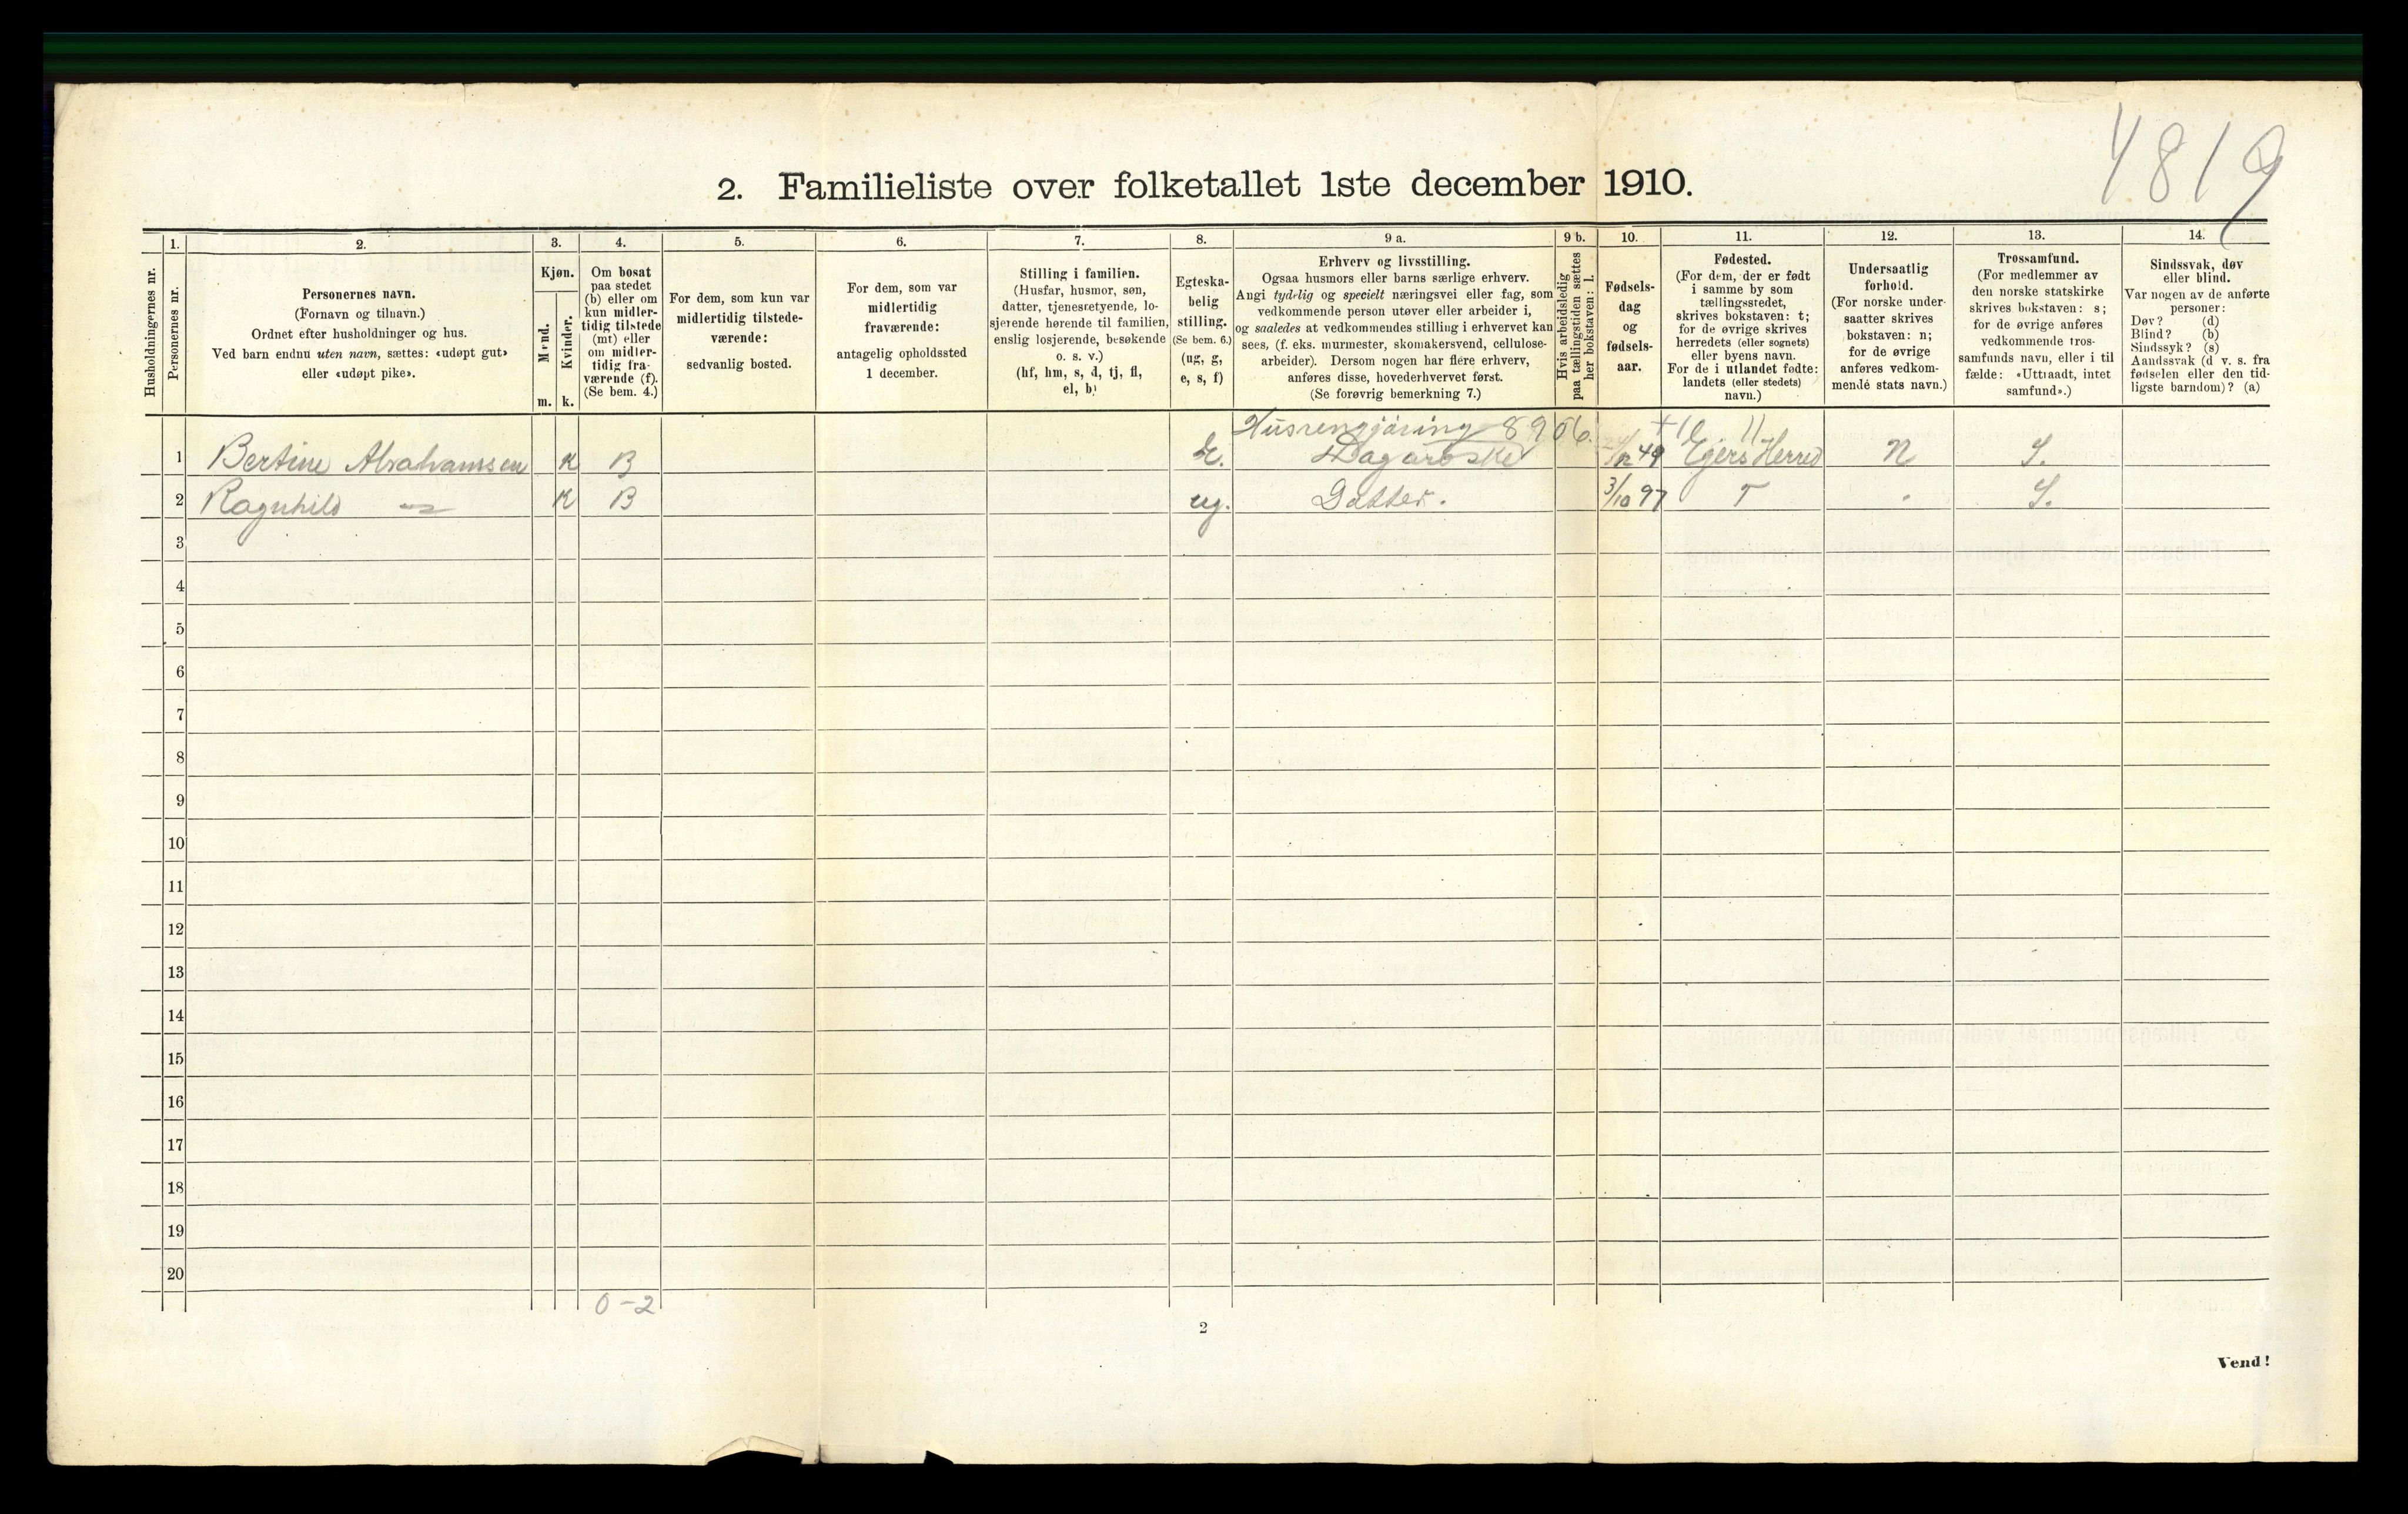 4819
2. Familieliste over folketallet 1ste december 1910.
Husholdningernes nr.
1.
Personernes nr.
2.
Personernes navn.
(Fornavn og tilnavn.)
Ordnet efter husholdninger og hus.
Ved barn endnu uten navn, sættes: «udøpt gut»
eller «udøpt pike».
3.
Kjøn.
Mænd.
Kvinder.
m. k.
4.
Om bosat
paa stedet
(b) eller om
kun midler-
tidig tilstede
(mt) eller
om midler-
tidig fra-
værende (f).
(Se bem. 4.)
5.
For dem, som kun var
midlertidig tilstede-
værende:
sedvanlig bosted.
6.
For dem, som var
midlertidig
fraværende:
antagelig opholdssted
1 december.
7.
Stilling i familien.
(Husfar, husmor, søn,
datter, tjenestetyende, lo-
sjerende hørende til familien,
enslig losjerende, besøkende
o. s. v.)
(hf, hm, s, d, tj, fl,
el, b)
8.
Egteska-
belig
stilling.
(Se bem. 6.)
(ug, g,
e, s, f)
9 a.
Erhverv og livsstilling.
Ogsaa husmors eller barns særlige erhverv.
Angi tydelig og specielt næringsvei eller fag, som
vedkommende person utøver eller arbeider i,
og saaledes at vedkommendes stilling i erhvervet kan
sees, (f. eks. murmester, skomakersvend, cellulose-
arbeider). Dersom nogen har flere erhverv,
anføres disse, hovederhvervet først.
(Se forøvrig bemerkning 7.)
9 b.
Hvis arbeidsledig
paa tællingstiden sættes
her bokstaven: l.
10.
Fødsels-
dag
og
fødsels-
aar.
11.
Fødested.
(For dem, der er født
i samme by som
tællingsstedet,
skrives bokstaven: t;
for de øvrige skrives
herredets (eller sognets)
eller byens navn.
For de i utlandet fødte:
landets (eller stedets)
navn.)
12.
Undersaatlig
forhold.
(For norske under-
saatter skrives
bokstaven: n;
for de øvrige
anføres vedkom-
mende stats navn.)
13.
Trossamfund.
(For medlemmer av
den norske statskirke
skrives bokstaven: s;
for de øvrige anføres
vedkommende tros-
samfunds navn, eller i til
fælde: «Uttraadt, intet
samfund».)
14.
Sindssvak, døv
eller blind.
Var nogen av de anførte
personer:
Døv? (d)
Blind? (b)
Sindssyk? (s)
Aandssvak (d. v. s. fra
fødselen eller den tid-
ligste barndom)? (a)
Husrengjøring 8906.
1 Bertine Abrahamsen K B E. 49 Egers Herred N S.
2 Ragnhild K B ug. Datter. 3/10 97 T S.
3
4
5
6
7
8
9
10
11
12
13
14
15
16
17
18
19
20
0-2
2
Vend!